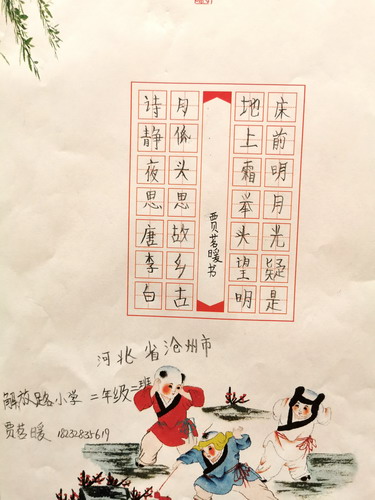 床前明月光疑是
地上霜举头望明
贾茗暖书
月係头思故乡古
诗静夜思唐李白
河北省沧州市
解放路小学二年级二班
贾茗暖